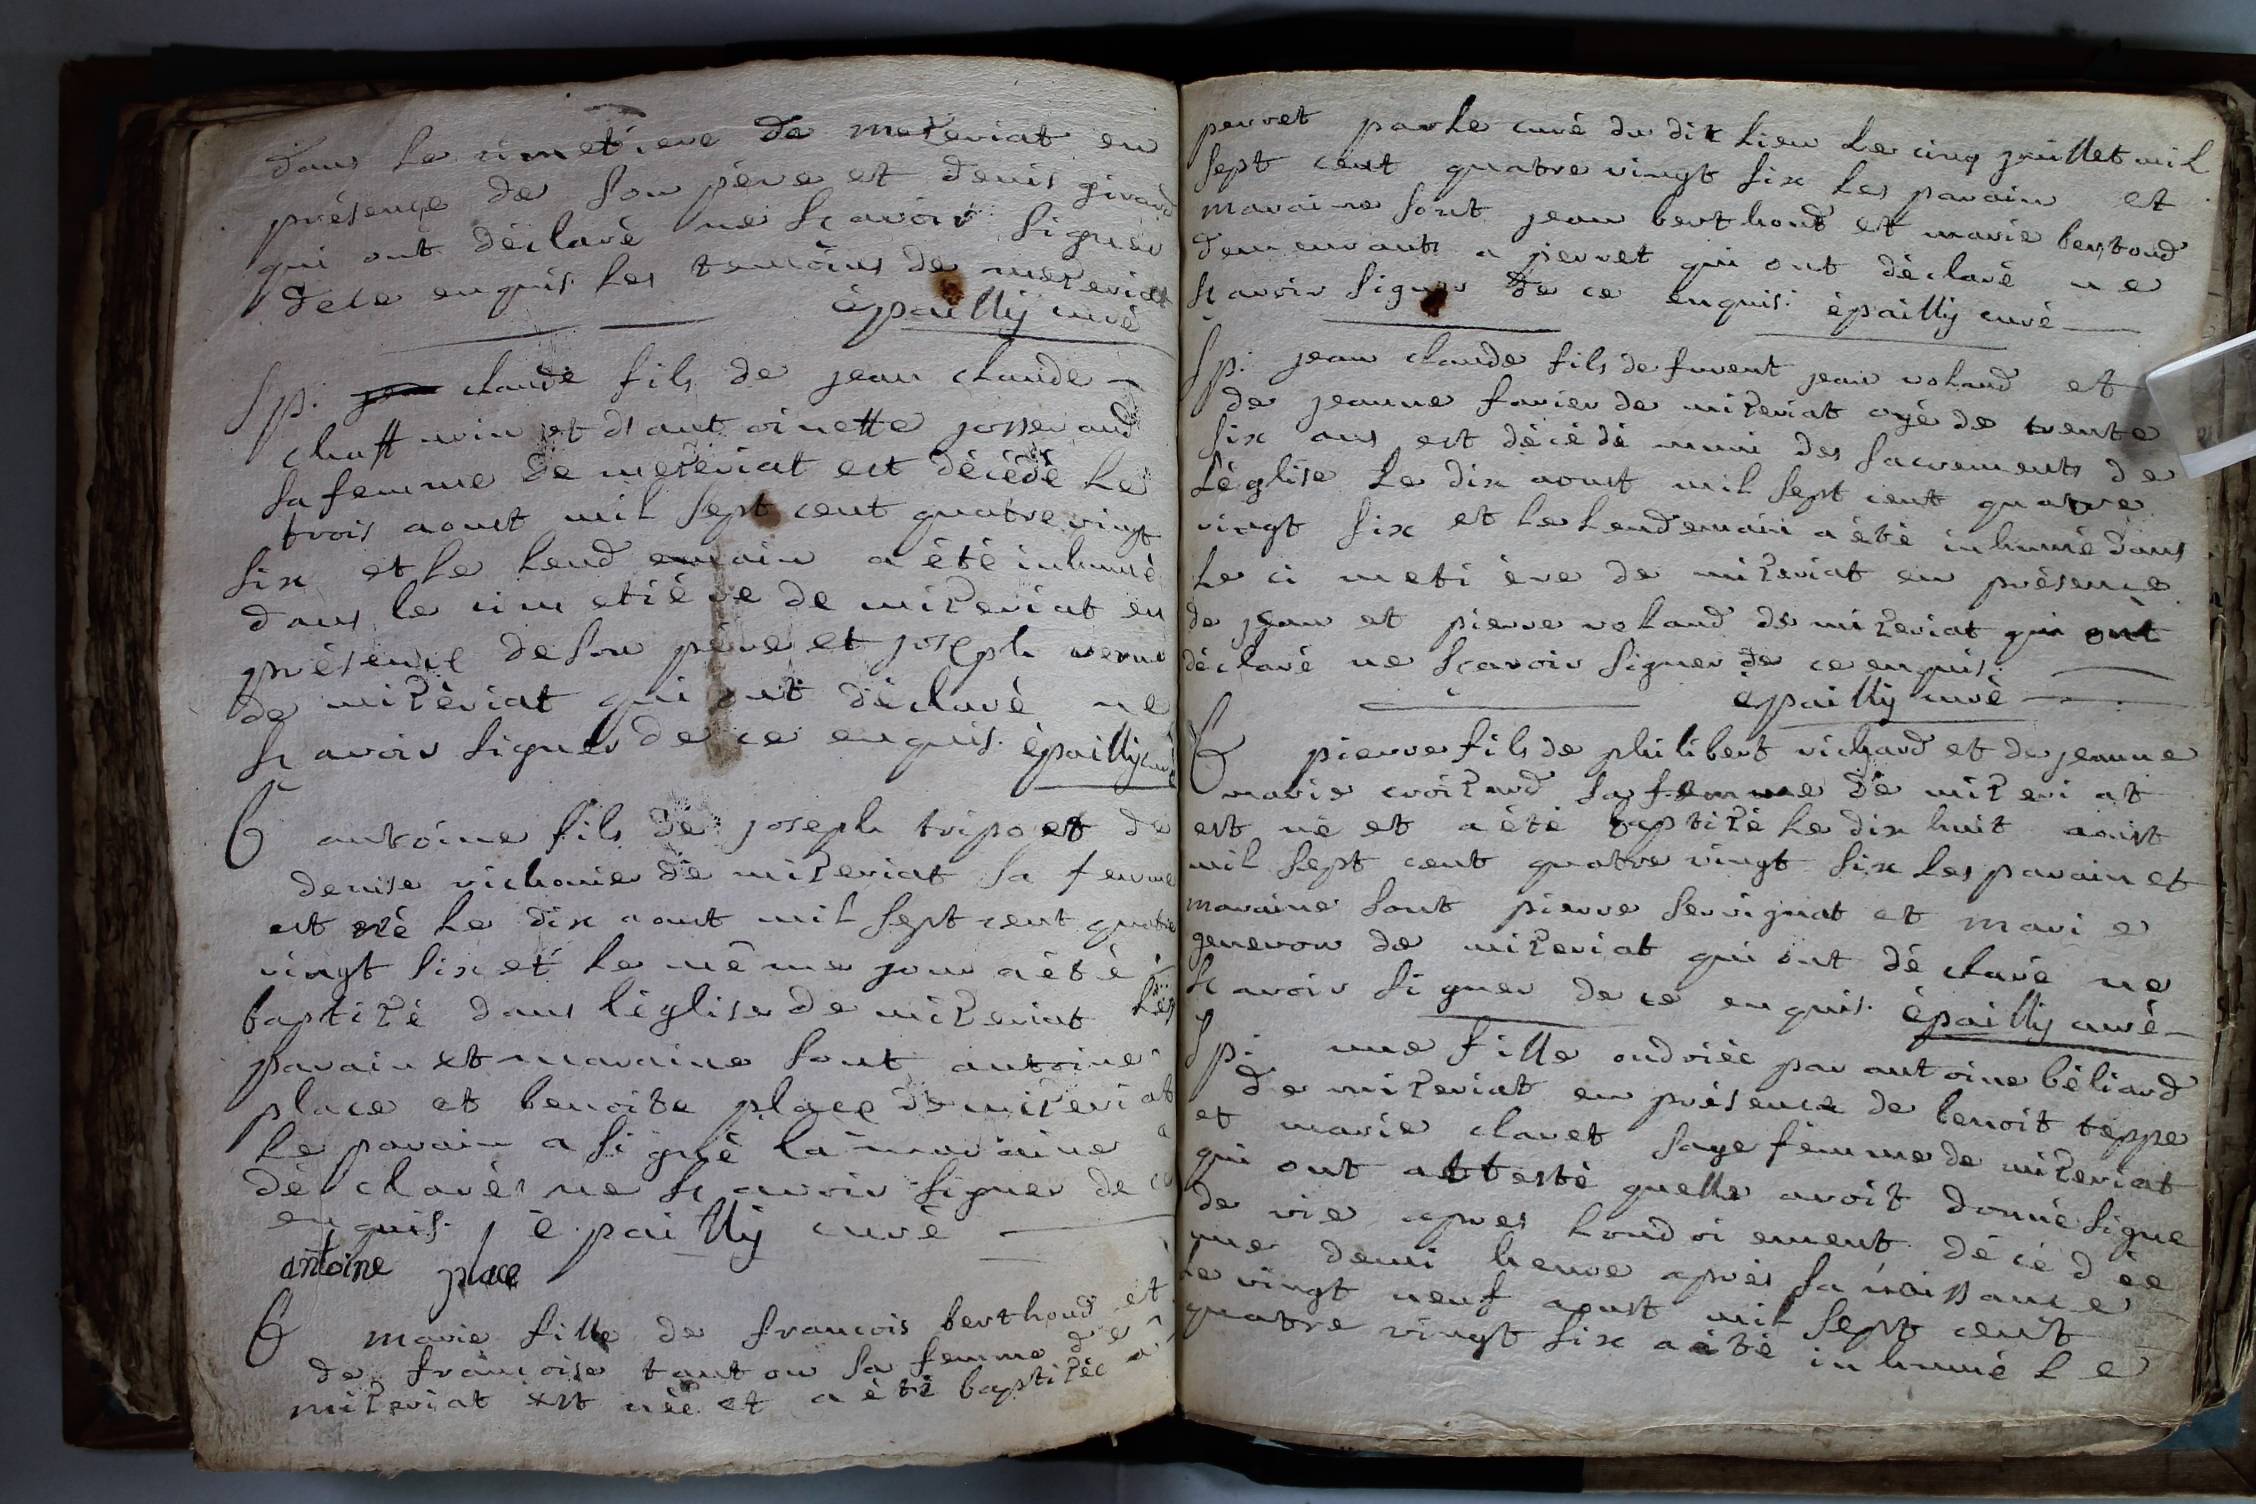 dans le cimetiere de mezeriat en
présence de son pére et denis girard
qui ont déclaré ne sçavoir signer
dece enquis. les temoins de mezeriat
épailly curé
Sp. claude fils de jean claude
et d'antoinette josserand
sa femme de mezeriat est décédé le
trois aoust mil sept cent quatre vingt
six et le lendemain a été inhumé
dans le cimetiére de mizeriat en
présence de son pére et joseph
de mizériat qui ont déclaré ne
sçavoir signer de ce enquis. épailly curé
B antoine fils de joseph tripoz et de
denise richonie de mizeriat sa femme
est né le dix aout mil sept cent quatre
vingt six et le même jour a été
baptizé dans léglise de mizeriat les
parain et maraine sont antoine
place et benoite place de mizeriat
le parain a signé la maraine a
déclaré ne sçavoir signer de ce
enquis. épailly curé
antoine place
B marie fille de francois berthoud et
de françoise tanton sa femme de
mizeriat est née et a été baptizée a
perret par le curé du dit lieu le cinq juillet mil
sept cent quatre vingt six les parain et
maraine sont jean berthoud et marie bertoud
demeurants a perret qui ont déclaré ne
sçavoir signer de ce enquis. épailly curé
Sp. jean claude fils de furent jean voland et
de jeanne farier de mizeriat agé de trente
six ans est décédé muni des sacrements de
léglise le dix aoust mil sept cent quatre
vingt six et le lendemain a été inhumé dans
le cimetiére de mizeriat en présence
de jean et pierre voland de mizeriat qui ont
déclaré ne sçavoir signer de ce enquis.
épailly curé
B pierre fils de philibert richard et de jeanne
marie croizard sa femme de mizeriat
est né et a été baptizé le dix huit aoust
mil sept cent quatre vingt six les parain et
maraine sont pierre servignat et marie
generon de mizeriat qui ont déclaré ne
sçavoir signer de ce enquis. épailly curé
Sp. une fille ondoiée par antoine béliard
de mizeriat en présence de benoit teppe
et marie claret sage femme de mizeriat
qui ont attesté quelle avoit donné signe
de vie apres londoiement décédée
une demi heure aprés sa naissance
le vingt neuf aoust mil sept cent
quatre vingt six a été inhumé le